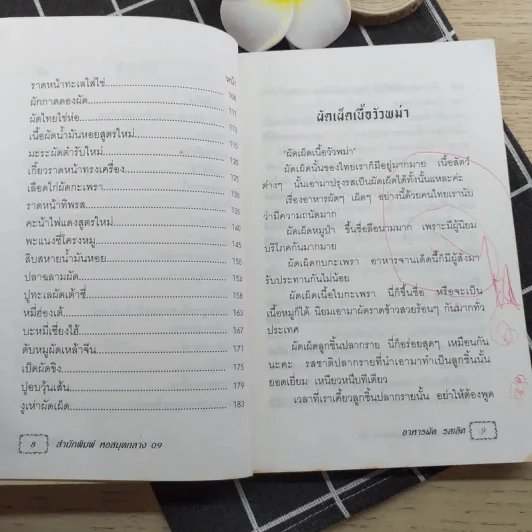 หน้า
ราดหน้าทะเลใส่ไข่.......................108
ผักกาดดองผัด.......................111
ผัดไทยไข่ห่อ.......................113
เนื้อผัดน้ำมันหอยสูตรใหม่.......................115
มะระผัดตำรับใหม่.......................120
เกี้ยวราดหน้าทรงเครื่อง.......................125
เลือดไก่ผัดกะเพรา.......................130
ราดหน้าทิพรส.......................135
คะน้าไฟแดงสูตรใหม่.......................140
พะแนงซี่โครงหมู.......................145
สิบสหายน้ำมันหอย.......................150
ปลาฉลามผัด.......................154
ปูทะเลผัดเต้าซี่.......................158
หมี่ฮ่องเต้.......................163
บะหมี่เซี่ยงไฮ้.......................167
ตับหมูผัดเหล้าจีน.......................171
เป็ดผัดขิง.......................175
ปูอบวุ้นเส้น.......................179
งูเห่าผัดเผ็ด.......................183
8 สำนักพิมพ์ หอสมุดกลาง 09
ผัดเผ็ดเนื้อวัวพม่า
"ผัดเผ็ดเนื้อวัวพม่า"
ผัดเผ็ดนั้นของไทยเราก็มีอยู่มากมาย เนื้อสัตว์
ต่างๆ นั้นเอามาปรุงรสเป็นผัดเผ็ดได้ทั้งนั้นแหละค่ะ
เรื่องอาหารผัดๆ เผ็ดๆ อย่างนี้ด้วยคนไทยเรานับ
ว่ามีความถนัดมาก
ผัดเผ็ดหมูป่า ขึ้นชื่อลือนามมาก เพราะมีผู้นิยม
บริโภคกันมากมาย
ผัดเผ็ดกบกะเพรา อาหารจานเด็ดนี้ก็มีผู้สั่งมา
รับประทานกันไม่น้อย
ผัดเผ็ดเนื้อใบกะเพรา นี่ก็ขึ้นชื่อ หรือจะเป็น
เนื้อหมูก็ได้ นิยมเอามาผัดราดข้าวสวยร้อนๆ กันมากทั่ว
ประเทศ
ผัดเผ็ดลูกชิ้นปลากราย นี่ก็อร่อยสุดๆ เหมือนกัน
นะคะ รสชาติปลากรายที่นำเอามาทำเป็นลูกชิ้นนั้น
ยอดเยี่ยม เหนียวหนึบทีเดียว
เวลาที่เราเคี้ยวลูกชิ้นปลากรายนั้น อย่าให้ต้องพูด
อาหารผัด รสเลิศ 9